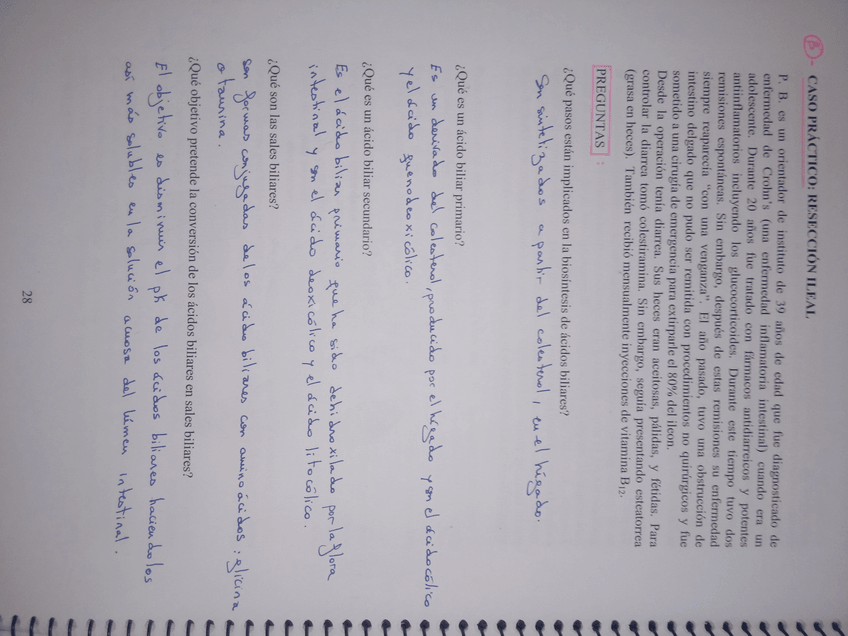 B- CASO PRÁCTICO: RESECCIÓN ILEAL
P. B. es un orientador de instituto de 39 años de edad que fue diagnosticado de
enfermedad de Crohn's (una enfermedad inflamatoria intestinal) cuando era un
adolescente. Durante 20 años fue tratado con fármacos antidiarreicos y potentes
antiinflamatorios incluyendo los glucocorticoides. Durante este tiempo tuvo dos
remisiones espontáneas. Sin embargo, después de estas remisiones su enfermedad
siempre reaparecía "con una venganza". El año pasado, tuvo una obstrucción de
intestino delgado que no pudo ser remitida con procedimientos no quirúrgicos y fue
sometido a una cirugía de emergencia para extirparle el 80% del íleon.
Desde la operación tenía diarrea. Sus heces eran aceitosas, pálidas, y fétidas. Para
controlar la diarrea tomó colestiramina. Sin embargo, seguía presentando esteatorrea
(grasa en heces). También recibió mensualmente inyecciones de vitamina B12.
PREGUNTAS :
¿Qué pasos están implicados en la biosíntesis de ácidos biliares?
Son sintetizados a partir del colesterol, en el hígado.
¿Qué es un ácido biliar primario?
Es un derivado del colesterol, producido por el hígado y son el ácido cólico
y el ácido quenodeoxicólico.
¿Qué es un ácido biliar secundario?
Es el ácido biliar primario que ha sido dehidroxilado por la flora
intestinal y son el ácido deoxicólico y el ácido litocólico.
¿Qué son las sales biliares?
Son formas conjugadas de los ácido biliares con aminoácidos: glicina
o taurina.
¿Qué objetivo pretende la conversión de los ácidos biliares en sales biliares?
El objetivo es disminuir el pK de los ácidos biliares haciendolos
así más solubles en la solución acuosa del lúmen intestinal.
28